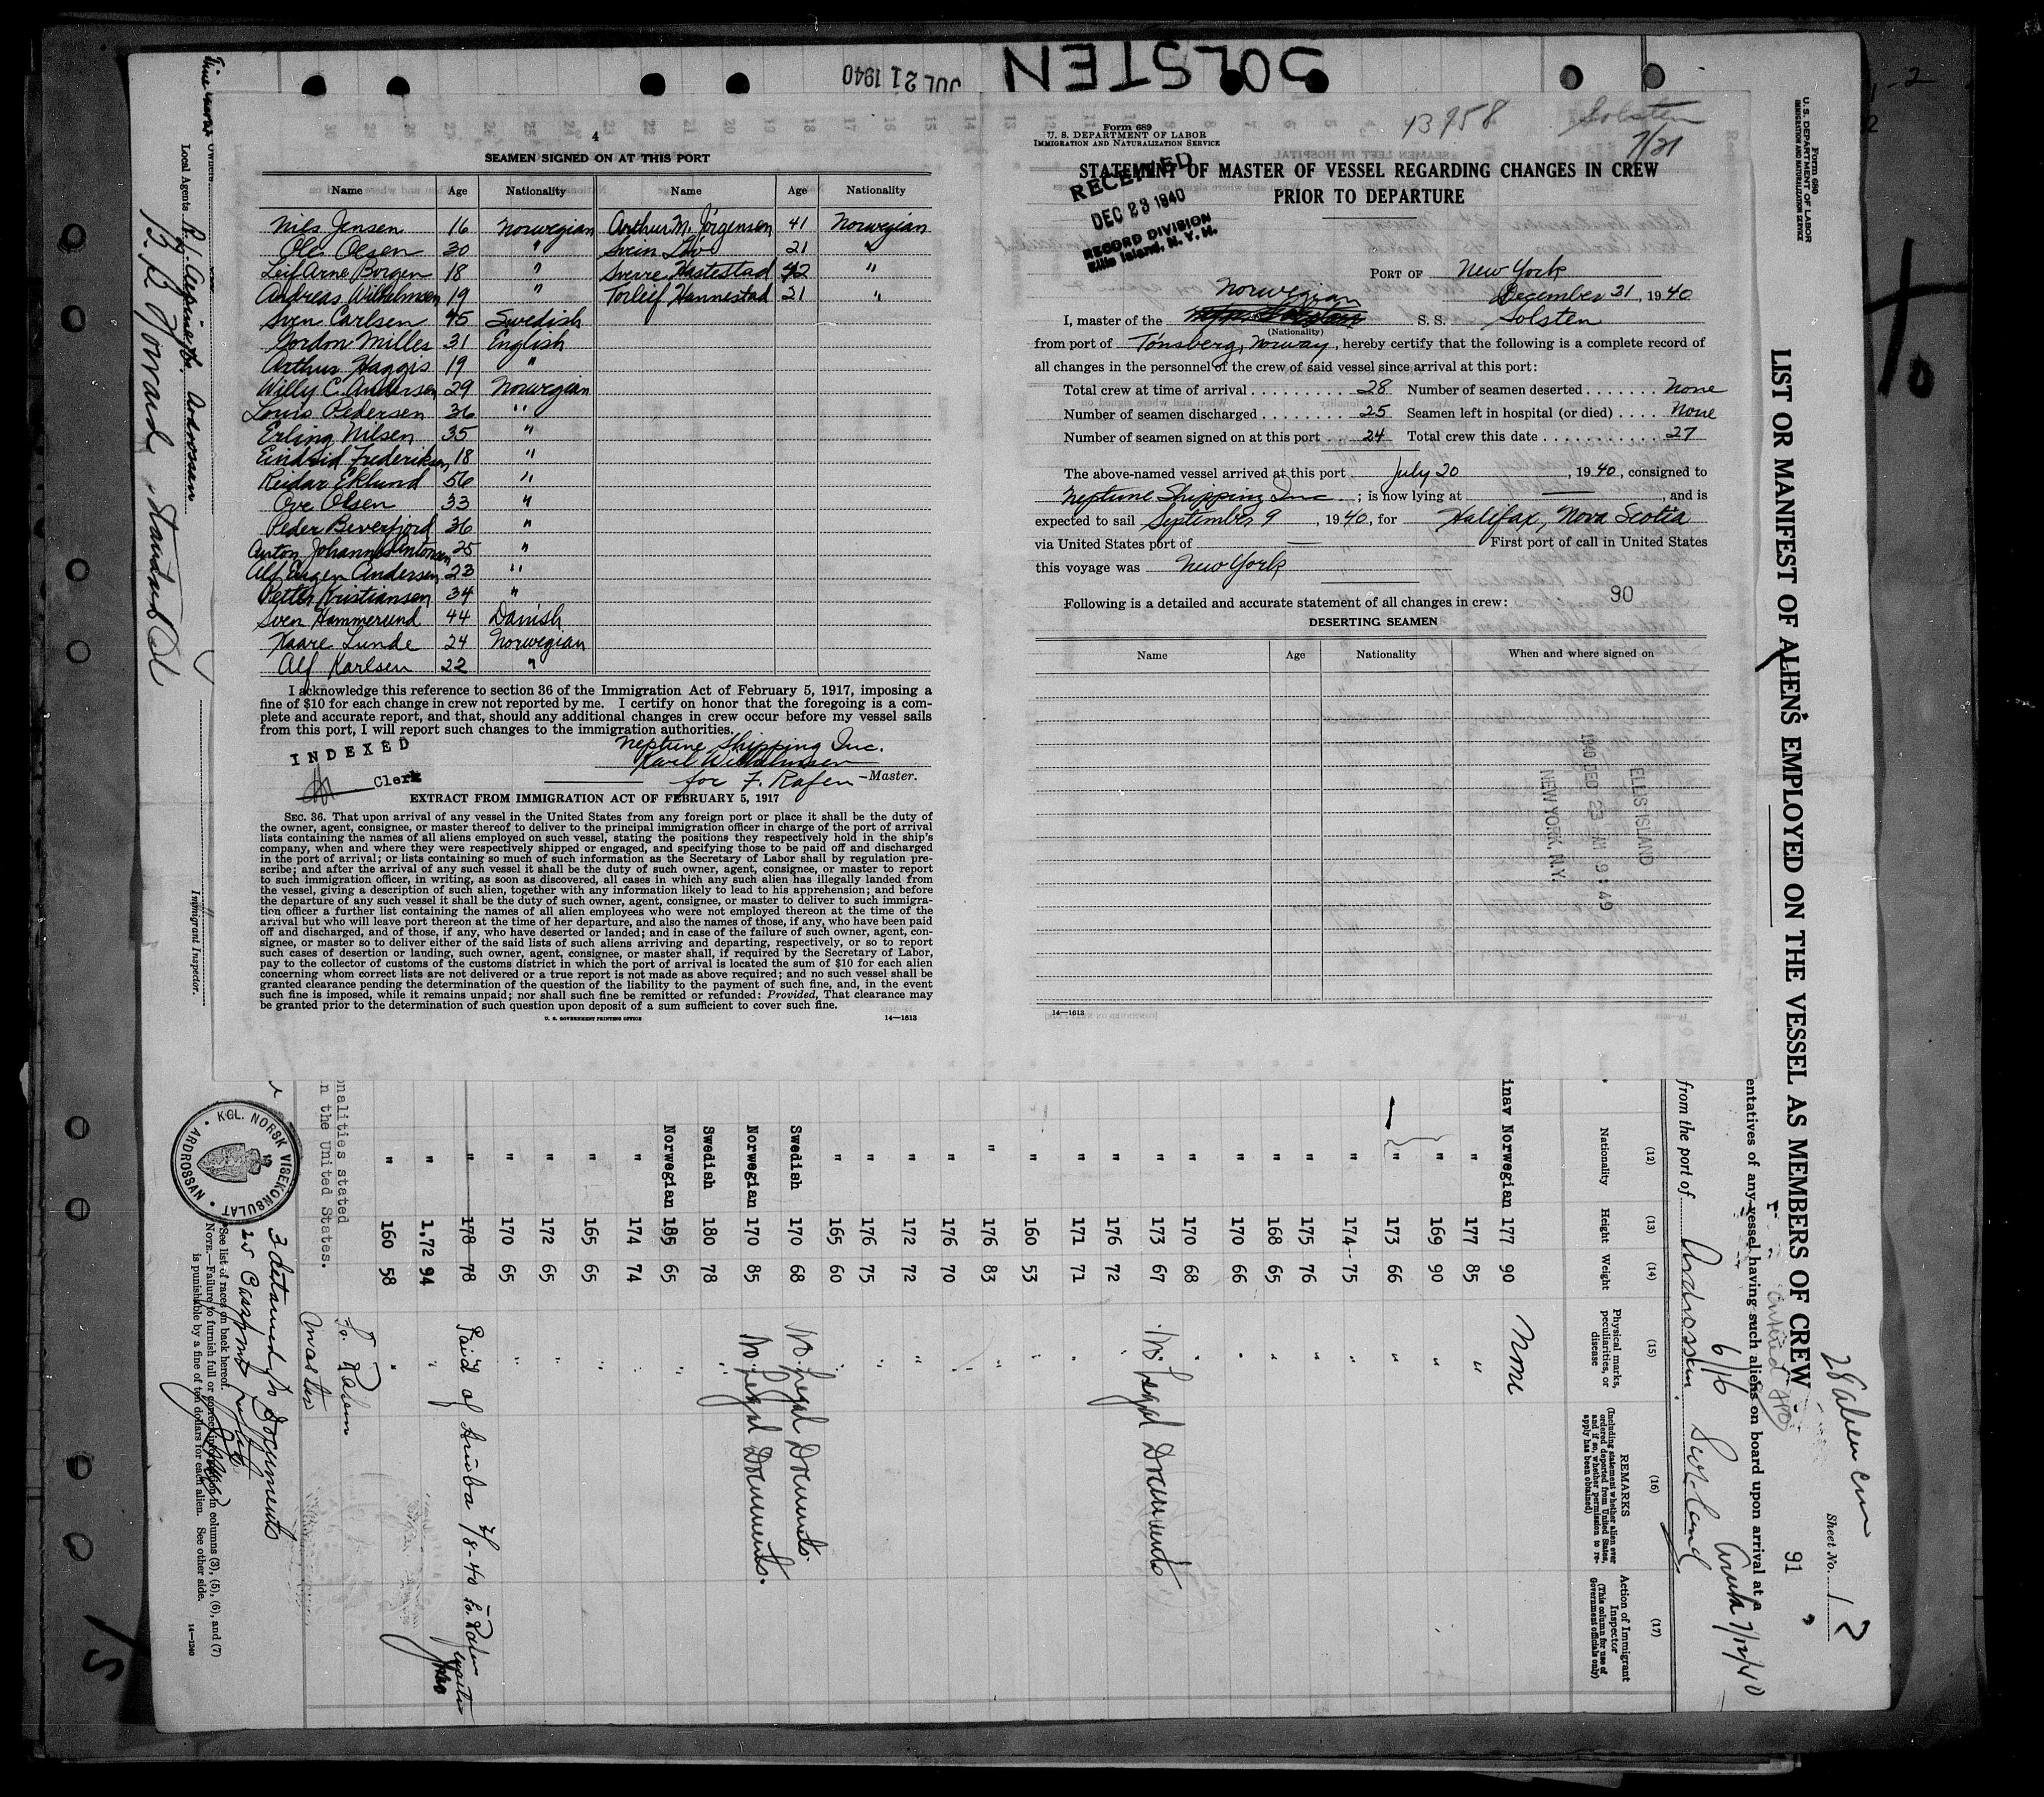 SOLSTEN
JUL 21 1940
4
SEAMEN SIGNED ON AT THIS PORT
Name Age Nationality Name Age Nationality
Nils Jensen 16 Norwegian Arthur M. Jörgensen 41 Norwegian
Ole Olsen 30 " Svein 21 "
Leif Arne Borgen 18 " Sverre Hastestad 42 "
Andreas Wilhelmsen 19 " Torleif Hannestad 21 "
Sven Carlsen 45 Swedish
Gordon Miller 31 English
Arthur Haggis 19 "
Willy C. Andersen 29 Norwegian
Louis Pedersen 36 "
Erling Nilsen 35 "
Eindrid Frederiksen 18 "
Reidar Eklund 56 "
Ove Olsen 33 "
Peder Beverfjord 36 "
Anton Johannes Antonsen 25 "
Alf Eugen Andersen 23 "
Petter Kristiansen 34 "
Sven Hammerlund 44 Danish
Kaare Lunde 24 Norwegian
Alf Karlsen 22 "
I acknowledge this reference to section 36 of the Immigration Act of February 5, 1917, imposing a
fine of $10 for each change in crew not reported by me. I certify on honor that the foregoing is a com-
plete and accurate report, and that, should any additional changes in crew occur before my vessel sails
from this port, I will report such changes to the immigration authorities.
INDEXED
Clerk
Neptune Shipping Inc.
Karl Wilhelmsen
for F. Rafen —Master.
EXTRACT FROM IMMIGRATION ACT OF FEBRUARY 5, 1917
SEC. 36. That upon arrival of any vessel in the United States from any foreign port or place it shall be the duty of
the owner, agent, consignee, or master thereof to deliver to the principal immigration officer in charge of the port of arrival
lists containing the names of all aliens employed on such vessel, stating the positions they respectively hold in the ship's
company, when and where they were respectively shipped or engaged, and specifying those to be paid off and discharged
in the port of arrival; or lists containing so much of such information as the Secretary of Labor shall by regulation pre-
scribe; and after the arrival of any such vessel it shall be the duty of such owner, agent, consignee, or master to report
to such immigration officer, in writing, as soon as discovered, all cases in which any such alien has illegally landed from
the vessel, giving a description of such alien, together with any information likely to lead to his apprehension; and before
the departure of any such vessel it shall be the duty of such owner, agent, consignee, or master to deliver to such immigra-
tion officer a further list containing the names of all alien employees who were not employed thereon at the time of the
arrival but who will leave port thereon at the time of her departure, and also the names of those, if any, who have been paid
off and discharged, and of those, if any, who have deserted or landed; and in case of the failure of such owner, agent, con-
signee, or master so to deliver either of the said lists of such aliens arriving and departing, respectively, or so to report
such cases of desertion or landing, such owner, agent, consignee, or master shall, if required by the Secretary of Labor,
pay to the collector of customs of the customs district in which the port of arrival is located the sum of $10 for each alien
concerning whom correct lists are not delivered or a true report is not made as above required; and no such vessel shall be
granted clearance pending the determination of the question of the liability to the payment of such fine, and, in the event
such fine is imposed, while it remains unpaid; nor shall such fine be remitted or refunded: Provided, That clearance may
be granted prior to the determination of such question upon deposit of a sum sufficient to cover such fine.
U. S. GOVERNMENT PRINTING OFFICE 14—1613
43958
Solsten
7/21
Form 689
U. S. DEPARTMENT OF LABOR
IMMIGRATION AND NATURALIZATION SERVICE
STATEMENT OF MASTER OF VESSEL REGARDING CHANGES IN CREW
PRIOR TO DEPARTURE
RECEIVED
DEC 23 1940
RECORD DIVISION
Ellis Island, N. Y. H.
PORT OF New York
December 31, 1940
Norwegian
I, master of the S. S. Solsten
(Nationality)
from port of Tönsberg, Norway, hereby certify that the following is a complete record of
all changes in the personnel of the crew of said vessel since arrival at this port:
Total crew at time of arrival 28 Number of seamen deserted None
Number of seamen discharged 25 Seamen left in hospital (or died) None
Number of seamen signed on at this port 24 Total crew this date 27
The above-named vessel arrived at this port July 20, 1940, consigned to
Neptune Shipping Inc.; is now lying at —, and is
expected to sail September 9, 1940, for Halifax, Nova Scotia
via United States port of — First port of call in United States
this voyage was New York
Following is a detailed and accurate statement of all changes in crew: 90
DESERTING SEAMEN
Name Age Nationality When and where signed on
ELLIS ISLAND
1940 DEC 23 AM 9:49
NEW YORK, N.Y.
14—1613
Form 689
U. S. DEPARTMENT OF LABOR
IMMIGRATION AND NATURALIZATION SERVICE
28 alien crew
Sheet No. 1
91
LIST OR MANIFEST OF ALIENS EMPLOYED ON THE VESSEL AS MEMBERS OF CREW
entatives of any vessel having such aliens on board upon arrival at a
from the port of Ardrossan Scotland 6/16 Aruba 7/12/40
(12) Nationality
(13) Height
(14) Weight
(15) Physical marks, peculiarities, or disease
(16) REMARKS
(Including statement whether alien ever ordered deported from United States, and if so, whether permission to reapply has been obtained)
(17) Action of Immigrant Inspector
(This column for use of Government officials only)
inav Norwegian 177 90 None
" 177 85 "
" 169 90 "
" 173 66 "
" 174 75 "
" 175 76 "
" 168 65 "
" 170 66 "
" 170 68 "
" 173 67 No legal Documents
" 176 72 "
" 171 71 "
" 160 53 "
" 176 83 "
" 176 70 "
" 172 72 "
" 176 75 "
" 165 60 "
Swedish 170 68 No legal Documents
Norwegian 170 85 No legal Documents.
Swedish 180 78 "
Norwegian 185 65 "
" 174 74 "
" 165 65 "
" 172 65 "
" 170 65 "
" 178 78 Paid of Aruba 7/8-40 Fr. Rafen Master
" 1.72 94 "
" 160 58 "
onalities stated
n the United States.
Fr. Rafen
Master
3 detained no Documents
25 Passport
KGL. NORSK VISEKONSULAT
ARDROSSAN
*See list of races on back hereof.
NOTE.—Failure to furnish full or correct information in columns (3), (5), (6), and (7)
is punishable by a fine of ten dollars for each alien. See other side.
14—1240
Owners
Local Agents
Immigrant Inspector.